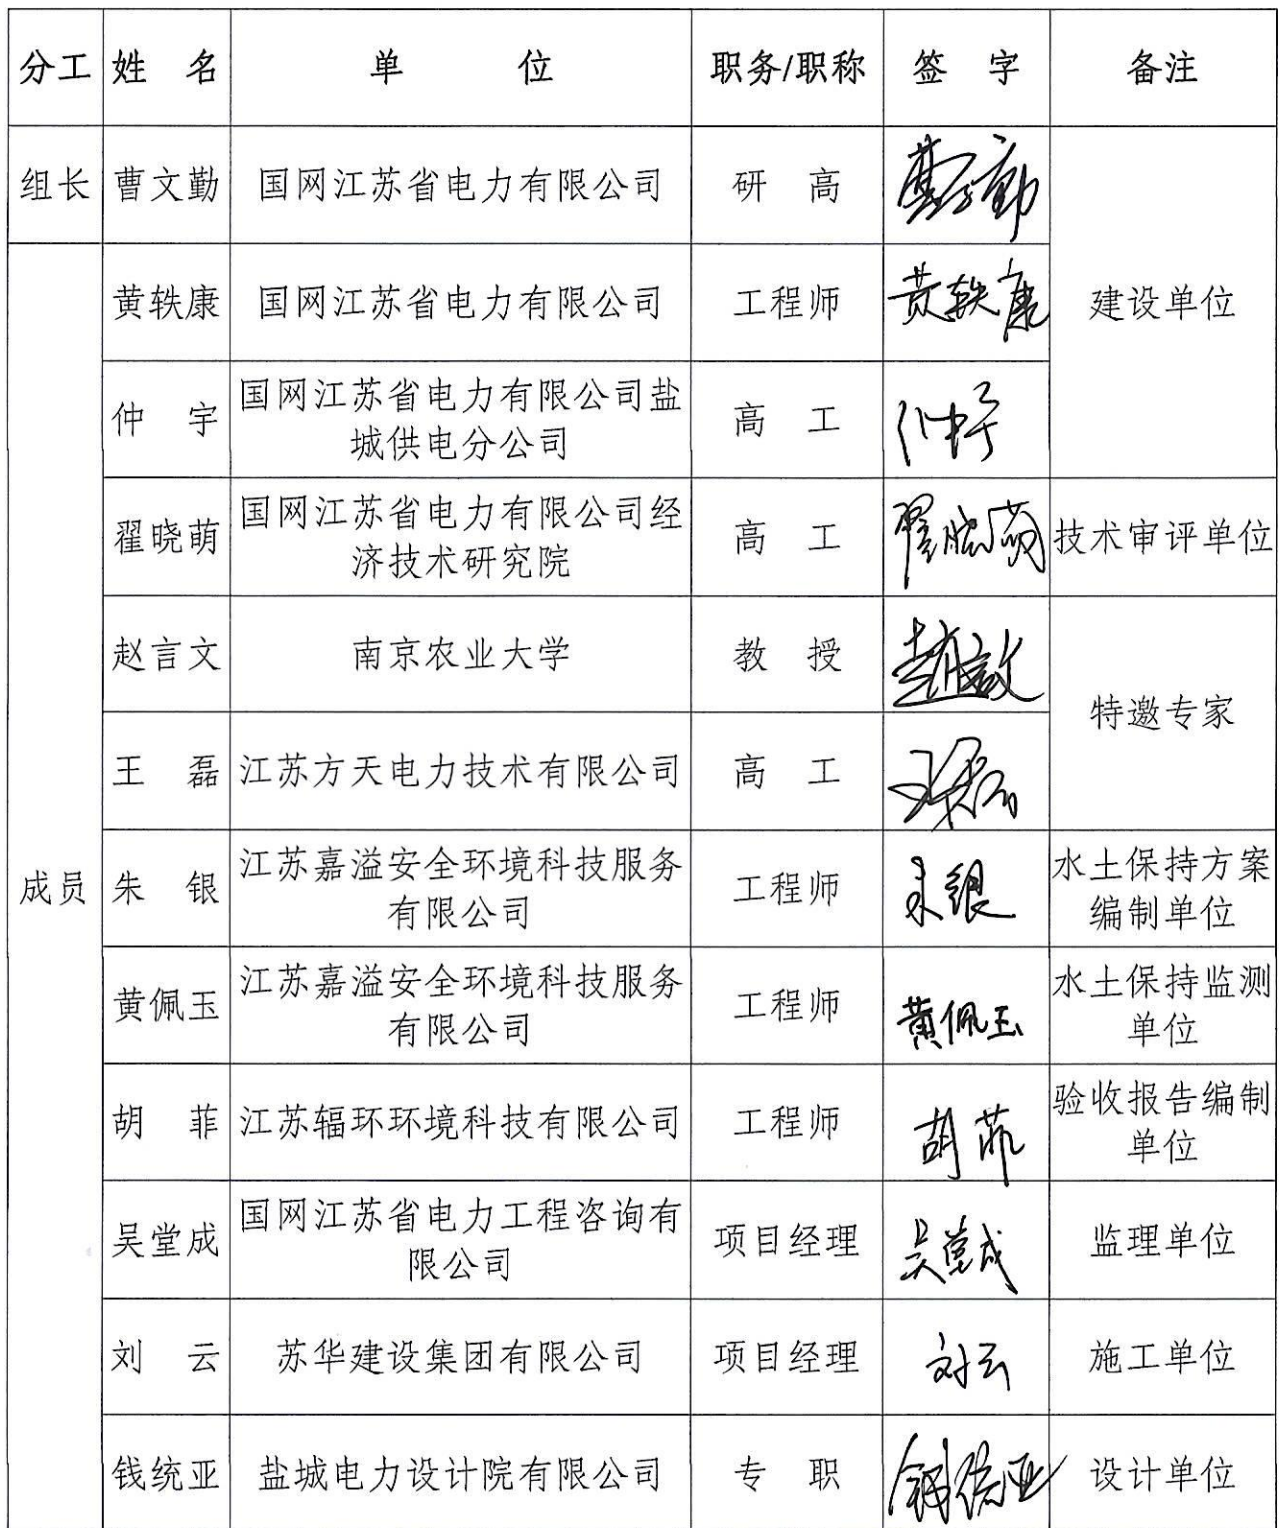 分工 姓 名 单 位 职务/职称 签 字 备注
组长 曹文勤 国网江苏省电力有限公司 研 高 曹文勤
黄轶康 国网江苏省电力有限公司 工程师 黄轶康 建设单位
仲 宇 国网江苏省电力有限公司盐
城供电分公司 高 工 仲宇
翟晓萌 国网江苏省电力有限公司经
济技术研究院 高 工 翟晓萌 技术审评单位
赵言文 南京农业大学 教 授 赵言文
特邀专家
王 磊 江苏方天电力技术有限公司 高 工 王磊
成员 朱 银 江苏嘉溢安全环境科技服务
有限公司 工程师 朱银 水土保持方案
编制单位
黄佩玉 江苏嘉溢安全环境科技服务
有限公司 工程师 黄佩玉 水土保持监测
单位
胡 菲 江苏辐环环境科技有限公司 工程师 胡菲 验收报告编制
单位
吴堂成 国网江苏省电力工程咨询有
限公司 项目经理 吴堂成 监理单位
刘 云 苏华建设集团有限公司 项目经理 刘云 施工单位
钱统亚 盐城电力设计院有限公司 专 职 钱统亚 设计单位